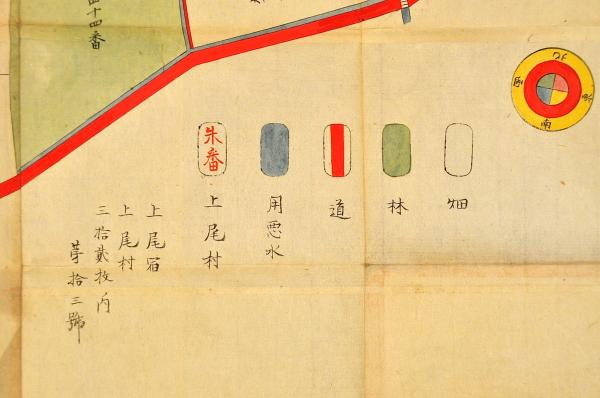 北
東
南
西
畑
林
道
用悪水
朱番
上尾村
上尾宿
上尾村
三拾貳枚内
第拾三號
四十四番